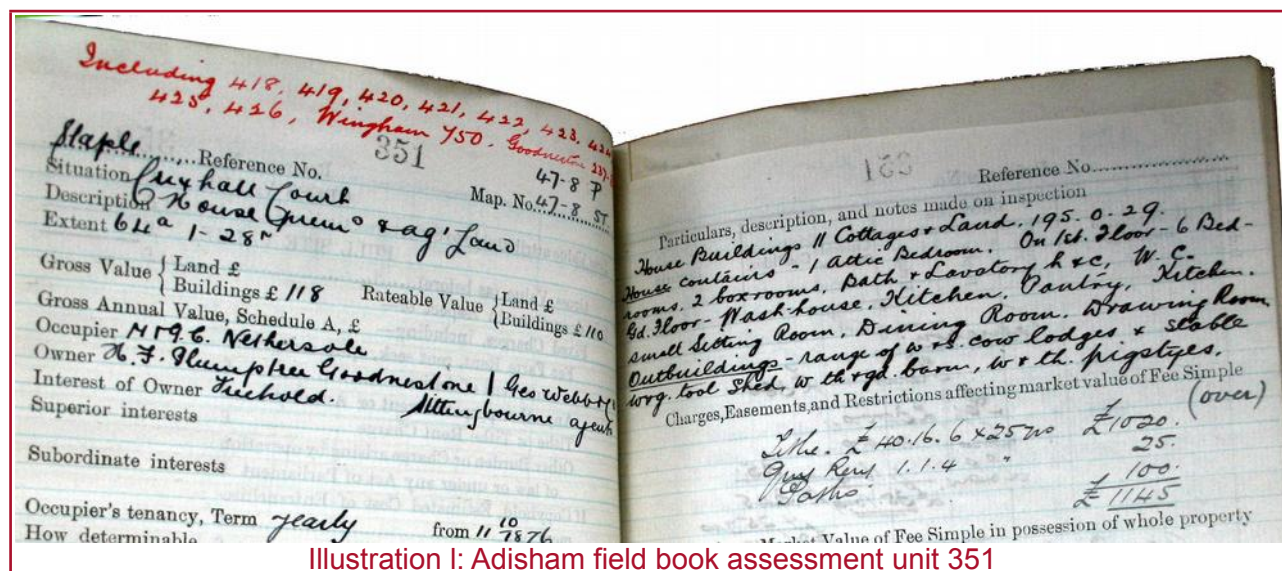 Including 418, 419, 420, 421, 422, 423, 424
425, 426, Wingham 750. Goodnestone
Staple Reference No. 351
47-8 P
Situation Crixhall Court Map. No. 47-8 ST
Description House Prems & ag' Land
Extent 64a 1-28r
Gross Value { Land £
Buildings £ 118
Rateable Value { Land £
Buildings £ 110
Gross Annual Value, Schedule A, £
Occupier Nethersole
Owner H. F. Plumptree Goodnestone | Geo Webb
Interest of Owner Freehold. Sittingbourne agents
Superior interests
Subordinate interests
Occupier's tenancy, Term yearly from 11 10 1876
How determinable
351
Reference No.
Particulars, description, and notes made on inspection
House Buildings 11 Cottages & Land, 195. 0. 29.
House contains - 1 attic Bedroom. On 1st. Floor - 6 Bed-
rooms, 2 box rooms, Bath & Lavatory h & c, W. C.
Gd. Floor - Wash-house, Kitchen, Pantry, Kitchen.
small Sitting Room, Dining Room, Drawing Room
Outbuildings - range of w & s. cow lodges & stable
w & g. tool shed, w th & gd. barn, w & th. pigstyes.
Charges, Easements, and Restrictions affecting market value of Fee Simple
(over)
Tithe. £40.16.6 x 25 yrs £1020.
Quit Rent 1.1.4 " 25.
Paths 100.
£ 1145
Market Value of Fee Simple in possession of whole property
Illustration I: Adisham field book assessment unit 351